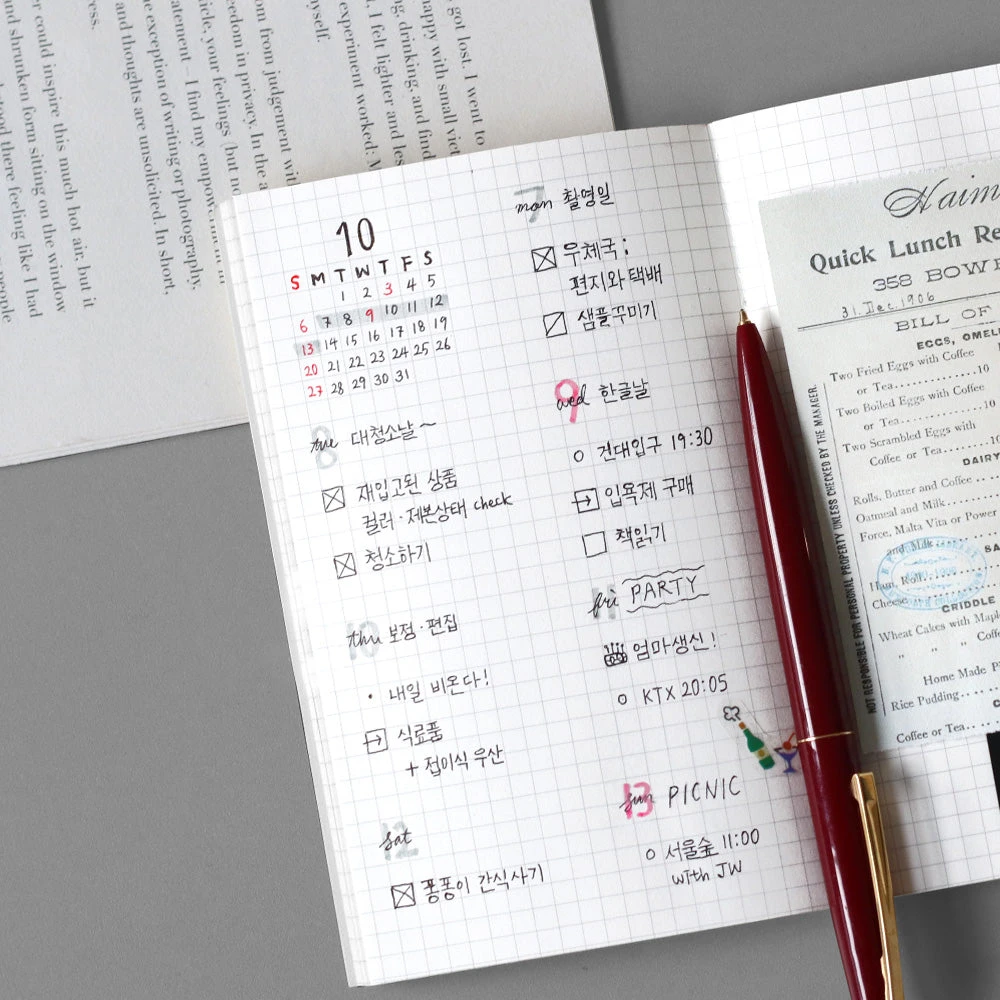 got lost. I went to
happy with small vict
ng, drinking, and find
I, I felt lighter and les
experiment worked: M
nyself.
om from judgement wi
eedom in privacy. In the a
icle, your feelings (but no
atement – I find my empow
e exception of writing or photography,
and thoughts are unsolicited. In short,
ress.
er could inspire this much hot air, but it
nd shrunken form sitting on the window
stood there feeling like I had
people
10
S M T W T F S
1 2 3 4 5
6 7 8 9 10 11 12
13 14 15 16 17 18 19
20 21 22 23 24 25 26
27 28 29 30 31
7 mon 촬영일
우체국;
편지와 택배
샘플꾸미기
8 tue 대청소날~
재입고된 상품
컬러·제본상태 check
청소하기
9 wed 한글날
건대입구 19:30
입욕제 구매
책읽기
10 thu 보정·편집
· 내일 비온다!
식료품
+ 접이식 우산
11 fri PARTY
엄마생신!
KTX 20:05
12 sat
퐁퐁이 간식사기
13 sun PICNIC
서울숲 11:00
with JW
Haim
Quick Lunch Re
358 BOWE
31. Dec. 1906
BILL OF
EGGS, OMEL
Two Fried Eggs with Coffee
or Tea...........10
Two Boiled Eggs with Coffee
or Tea...........10
Two Scrambled Eggs with
Coffee or Tea..........10
DAIRY
Rolls, Butter and Coffee
Oatmeal and Milk
Force, Malta Vita or Power
and Milk
SA
Ham Roll
Cheese
GRIDDLE
Wheat Cakes with Maple
" " Coffe
Home Made P
Rice Pudding
C
Coffee or Tea
NOT RESPONSIBLE FOR PERSONAL PROPERTY UNLESS CHECKED BY THE MANAGER.